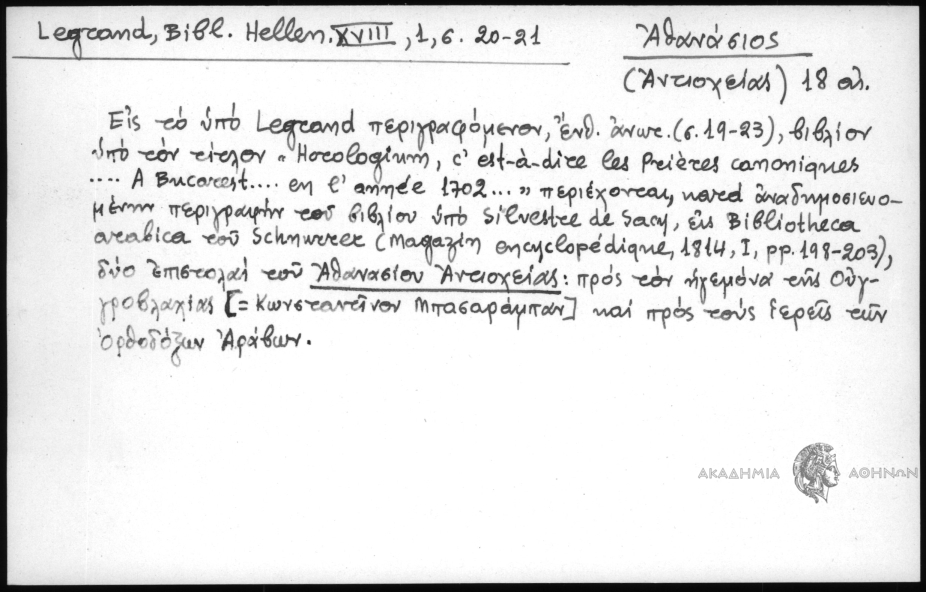 Legrand, Bibl. Hellen. XVIII, 1, σ. 20-21
Ἀθανάσιος
(Ἀντιοχείας) 18 αἰ.
Εἰς τὸ ὑπὸ Legrand περιγραφόμενον, ἔνθ. ἀνωτ. (σ. 19-23), βιβλίον
ὑπὸ τὸν τίτλον « Horologium, c'est-à-dire les Prières canoniques
.... A Bucarest .... en l'année 1702 ... » περιέχονται, κατὰ ἀναδημοσιευο-
μένην περιγραφὴν τοῦ βιβλίου ὑπὸ Silvestre de Sacy, εἰς Bibliotheca
arabica τοῦ Schnurrer (Magazin encyclopédique, 1814, I, pp. 198-203),
δύο ἐπιστολαὶ τοῦ Ἀθανασίου Ἀντιοχείας: πρὸς τὸν ἡγεμόνα τῆς Οὑγ-
γροβλαχίας [= Κωνσταντῖνον Μπασαράμπαν] καὶ πρὸς τοὺς ἱερεῖς τῶν
Ὀρθοδόξων Ἀράβων.
ΑΚΑΔΗΜΙΑ ΑΘΗΝΩΝ